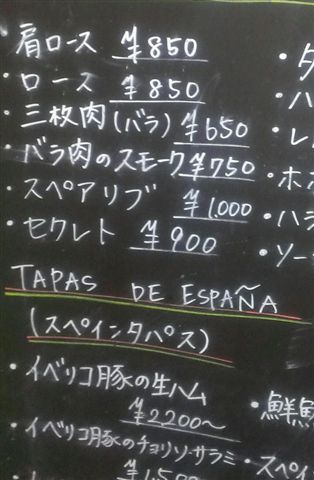 肩ロース ¥850
・ロース ¥850
・三枚肉(バラ) ¥650
・バラ肉のスモーク ¥750
・スペアリブ ¥1,000
・セクレト ¥900
TAPAS DE ESPAÑA
(スペインタパス)
・イベリコ豚の生ハム
¥2,200〜
・イベリコ豚のチョリソ・サラミ
¥1,500
・
・ハ
・レ
・ホホ
・ハラ
・ソー
・鮮魚
・スペイ